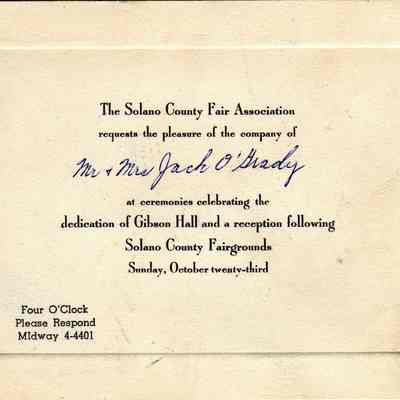 The Solano County Fair Association
requests the pleasure of the company of
Mr + Mrs Jack O'Grady
at ceremonies celebrating the
dedication of Gibson Hall and a reception following
Solano County Fairgrounds
Sunday, October twenty-third
Four O'Clock
Please Respond
MIdway 4-4401